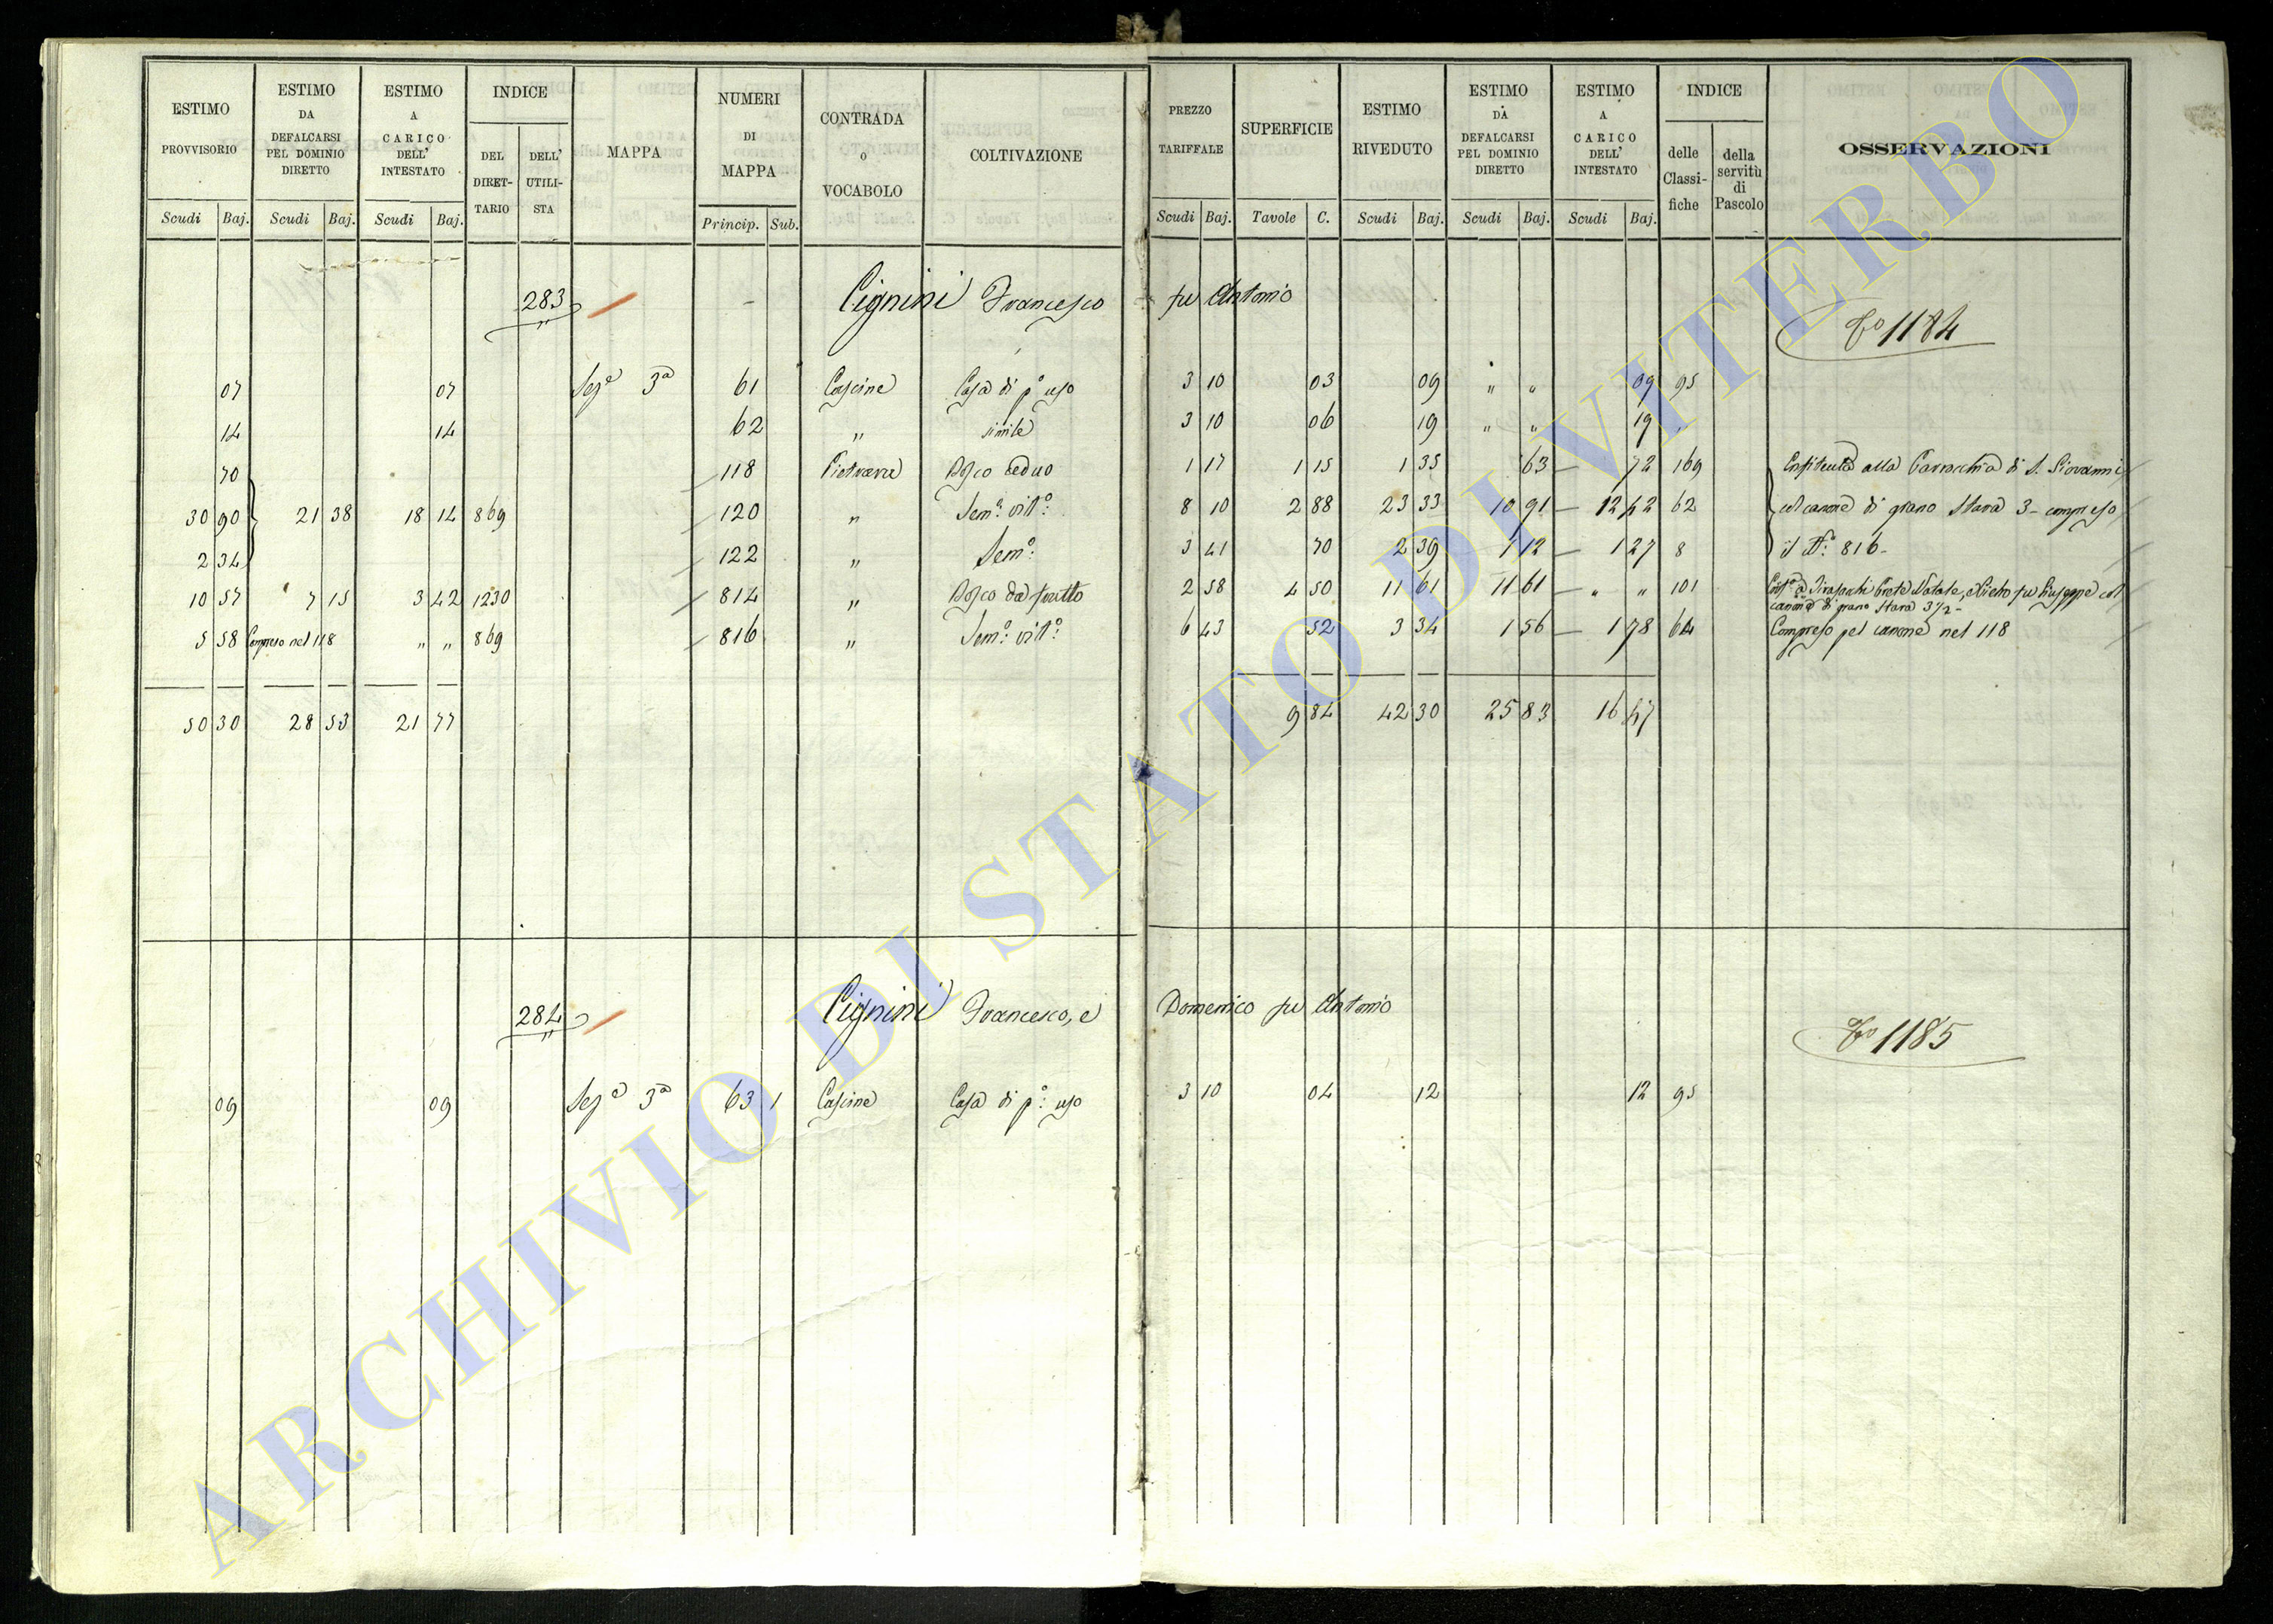 ESTIMO PROVVISORIO
ESTIMO DA DEFALCARSI PEL DOMINIO DIRETTO
ESTIMO A CARICO DELL' INTESTATO
INDICE
DEL DIRET-TARIO
DELL' UTILI-STA
MAPPA
NUMERI DI MAPPA
CONTRADA o VOCABOLO
COLTIVAZIONE
PREZZO TARIFFALE
SUPERFICIE
ESTIMO RIVEDUTO
ESTIMO DA DEFALCARSI PEL DOMINIO DIRETTO
ESTIMO A CARICO DELL' INTESTATO
INDICE
delle Classi-fiche
della servitù di Pascolo
OSSERVAZIONI
Scudi Baj. Scudi Baj. Scudi Baj. Princip. Sub. Scudi Baj. Tavole C. Scudi Baj. Scudi Baj. Scudi Baj.
283 Cignini Francesco fu Antonio
To 1184
07 07 Seze 3a 61 Cascine Casa di po uso 3 10 03 09 " " 09 95
14 14 62 " simile 3 10 06 19 " " 19 "
70 118 Bosco ceduo 1 17 1 15 1 35 63 — 72 169 Enfiteuta alla Parrocchia di S. Giovanni
30 90 21 38 18 14 869 120 " Semo: vito: 8 10 2 88 23 33 10 91 — 12 42 62 col canone di grano Stara 3 - compreso
2 34 122 " Semo: 3 41 70 2 39 1 12 — 1 27 8 il No: 816 -
10 57 7 15 3 42 1230 814 " Bosco da frutto 2 58 4 50 11 61 11 61 — " " 101 Natale, fu Giuseppe col
canone di grano Stara 3 1/2 -
5 58 Compreso nel 118 " " 869 816 " Semo: vito: 6 43 52 3 34 1 56 — 1 78 64 Compreso pel canone nel 118
50 30 28 53 21 77 9 84 42 30 25 83 16 47
284 Cignini Francesco, e Domenico fu Antonio
To 1185
09 09 Seza 3a 63 1 Cascine Casa di po: uso 3 10 04 12 12 95
ARCHIVIO DI STATO DI VITERBO